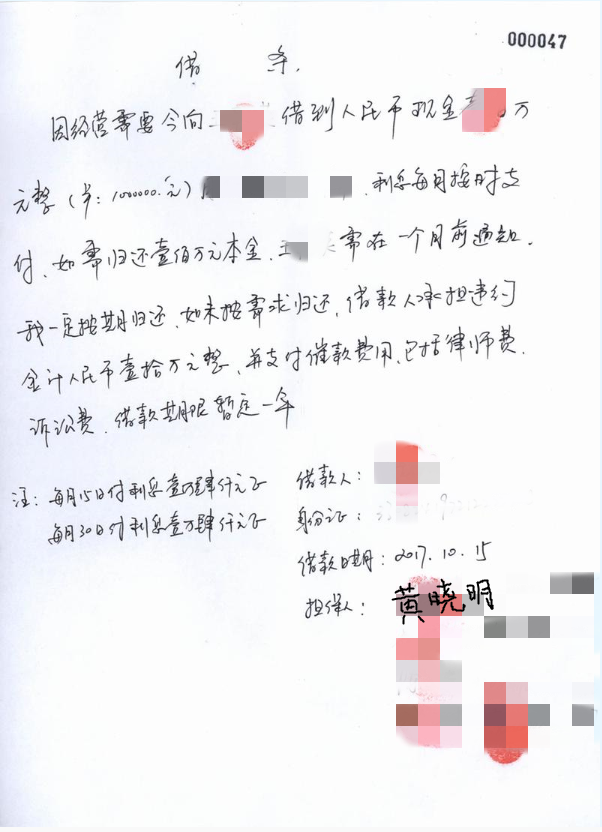 000047
借 条.
因经营需要今向 借到人民币现金 万
元整（¥：1000000.元） . 利息每月按时支
付. 如需归还壹佰万元本金. 需在一个月前通知.
我一定按期归还. 如未按需求归还, 借款人承担违约
金计人民币壹拾万元整, 并支付催款费用, 包括律师费.
诉讼费. 借款期限暂定一年
注: 每月15日付利息壹万肆仟元正
每月30日付利息壹万肆仟元正
借款人:
身份证:
借款日期: 2017.10.15
担保人: 黄晓明